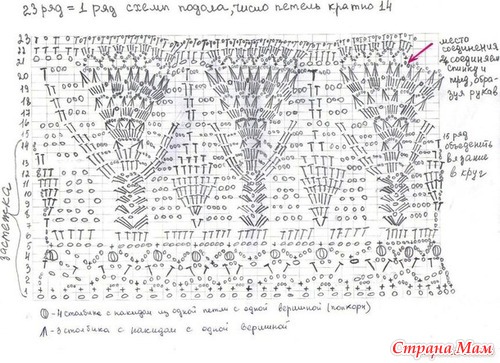 23 ряд = 1 ряд схемы подола, число петель кратно 14
место
соединения
спинку и
перед, обра-
зуя рукав
15 ряд
объеденить
вязание
в круг
23
22
21
20
19
18
17
16
15
14
13
12
11
10
9
8
7
6
5
4
3
2
1
застежка
- 4 столбика с накидам из одной петли с одной вершиной (попкорн)
- 3 столбика с накидам с одной вершиной
Страна Мам